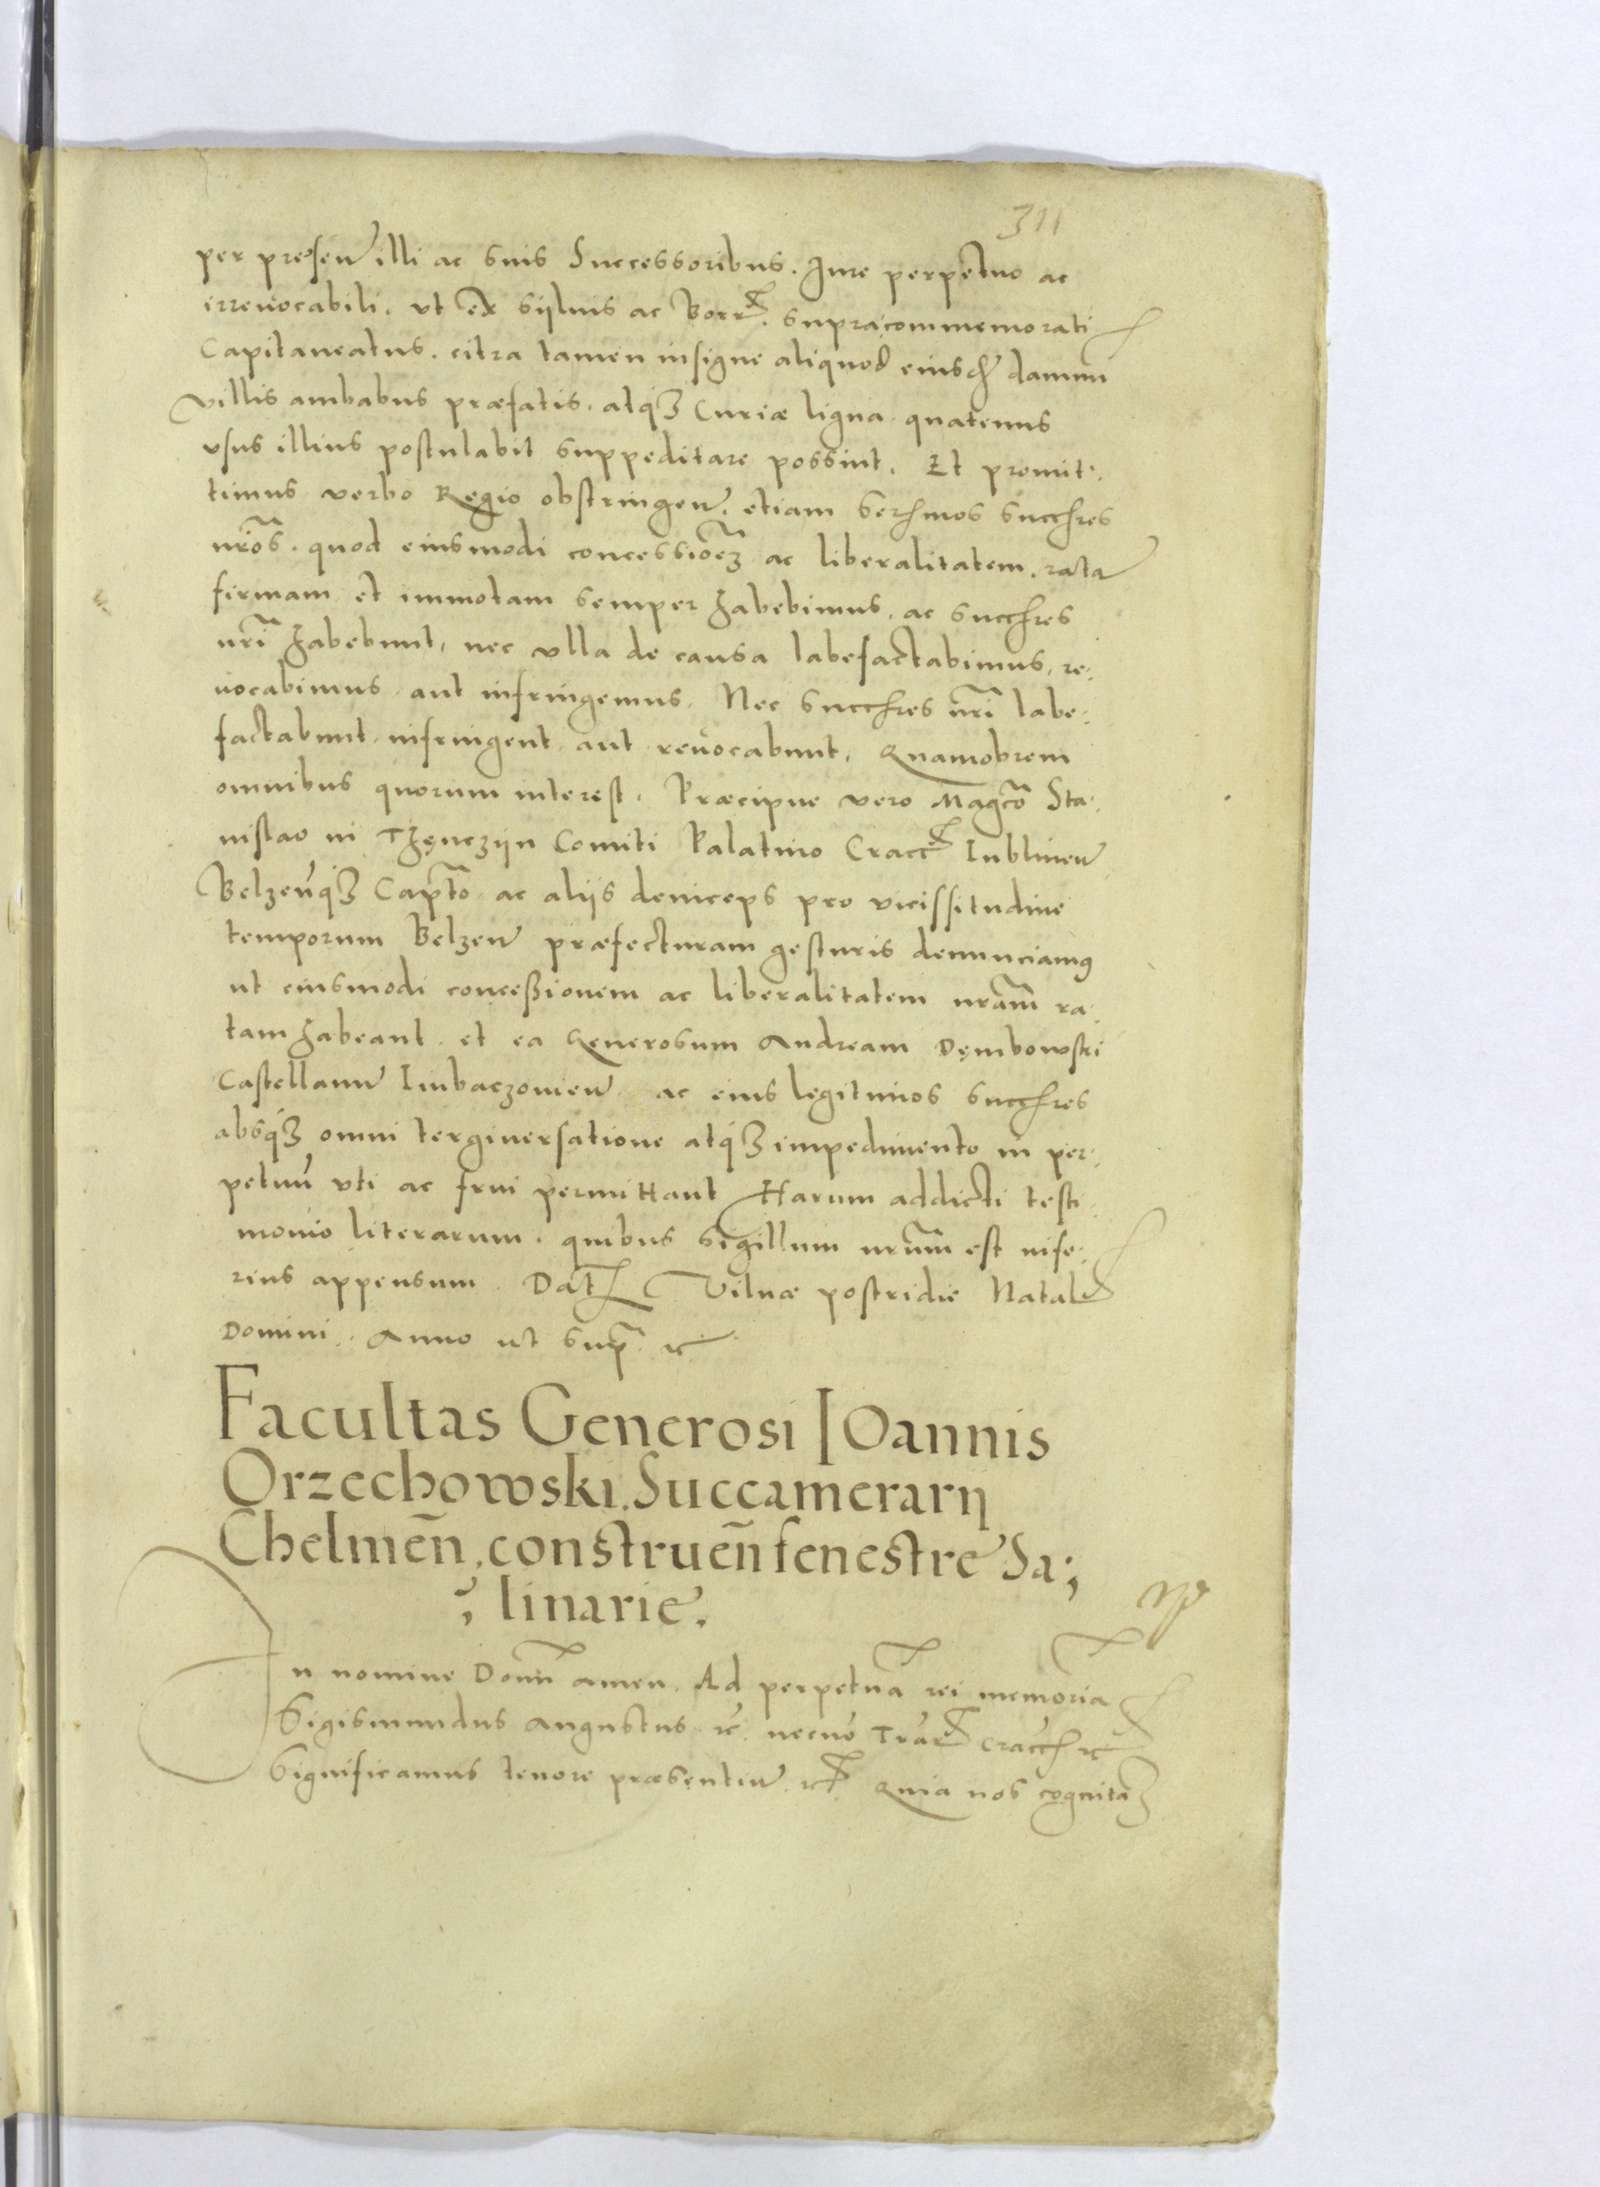 311
per presen illi ac suis Successoribus. Iure perpetuo ac
irreuocabili. vt ex syluis ac Borr. supracommemorati
Capitaneatus. citra tamen insigne aliquod eiusd damnu
villis ambabus præfatis, atq3 Curiæ ligna quatenus
vsus illius postulabit suppeditare possint. Et promit:
timus verbo Regio obstringen. etiam Sermos succres
nros. quod eiusmodi concessioe3 ac liberalitatem, rata
firmam et immotam semper habebimus, ac succres
nri habebunt, nec vlla de causa labefactabimus, re:
uocabimus aut infringemus. Nec succres nri labe:
factabunt infringent aut reuocabunt. Quamobrem
omnibus quorum interest. Præcipue vero Magco Sta:
nislao in Thęnczyn Comiti Palatino Cracc Lublinen
Belzenq3 Capto ac aliis deinceps pro vicissitudine
temporum Belzen præfecturam gesturis denunciamq
ut eiusmodi conceßionem ac liberalitatem nram ra:
tam habeant et ea Generosum Andream Dęmbowski
Castellanu Lubaczouien ac eius legitimos succres
absq3 omni tergiuersatione atq3 impedimento in per:
petuu vti ac frui permittant Harum addicti testi:
monio literarum. quibus Sigillum nrum est infe:
rius appensum. Dat Vilnæ postridie Natal
Domini. Anno ut supra
Facultas Generosi Ioannis
Orzechowski. Succamerarij
Chelmen, construen fenestre Sa:
: linarie.
In nomine Domi amen. Ad perpetua rei memoria
Sigismundus Augustus necno Trar Cracc
Significamus tenore præsentiu Quia nos cognita3